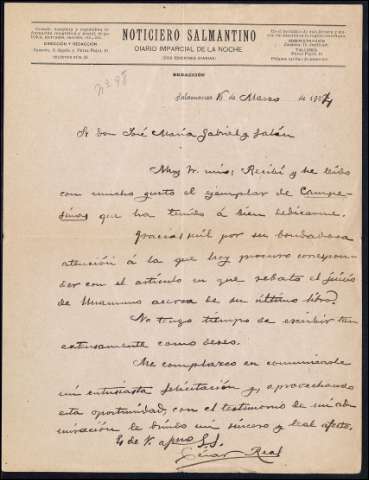 NOTICIERO SALMANTINO
DIARIO IMPARCIAL DE LA NOCHE
(DOS EDICIONES DIARIAS)
DIRECCIÓN Y REDACCIÓN
TALLERES
REDACCIÓN
Nº 98
Salamanca 15 de Marzo de 1904
Sr don José María Gabriel y Galán
Muy Sr. mío: Recibí y he leído
con mucho gusto el ejemplar de Campe-
sinas que ha tenido á bien dedicarme.
Gracias mil por su bondadosa
atención á la que hoy procuro correspon-
der con el artículo en que rebato el juicio
de Unamuno acerca de su último libro.
No tengo tiempo de escribir tan
extensamente como deseo.
Me complazco en comunicarle
mi entusiasta felicitación y, aprovechando
esta oportunidad, con el testimonio de mi ad-
miración le brindo mi sincero y leal afecto.
de V. afmo S.S.
César Real